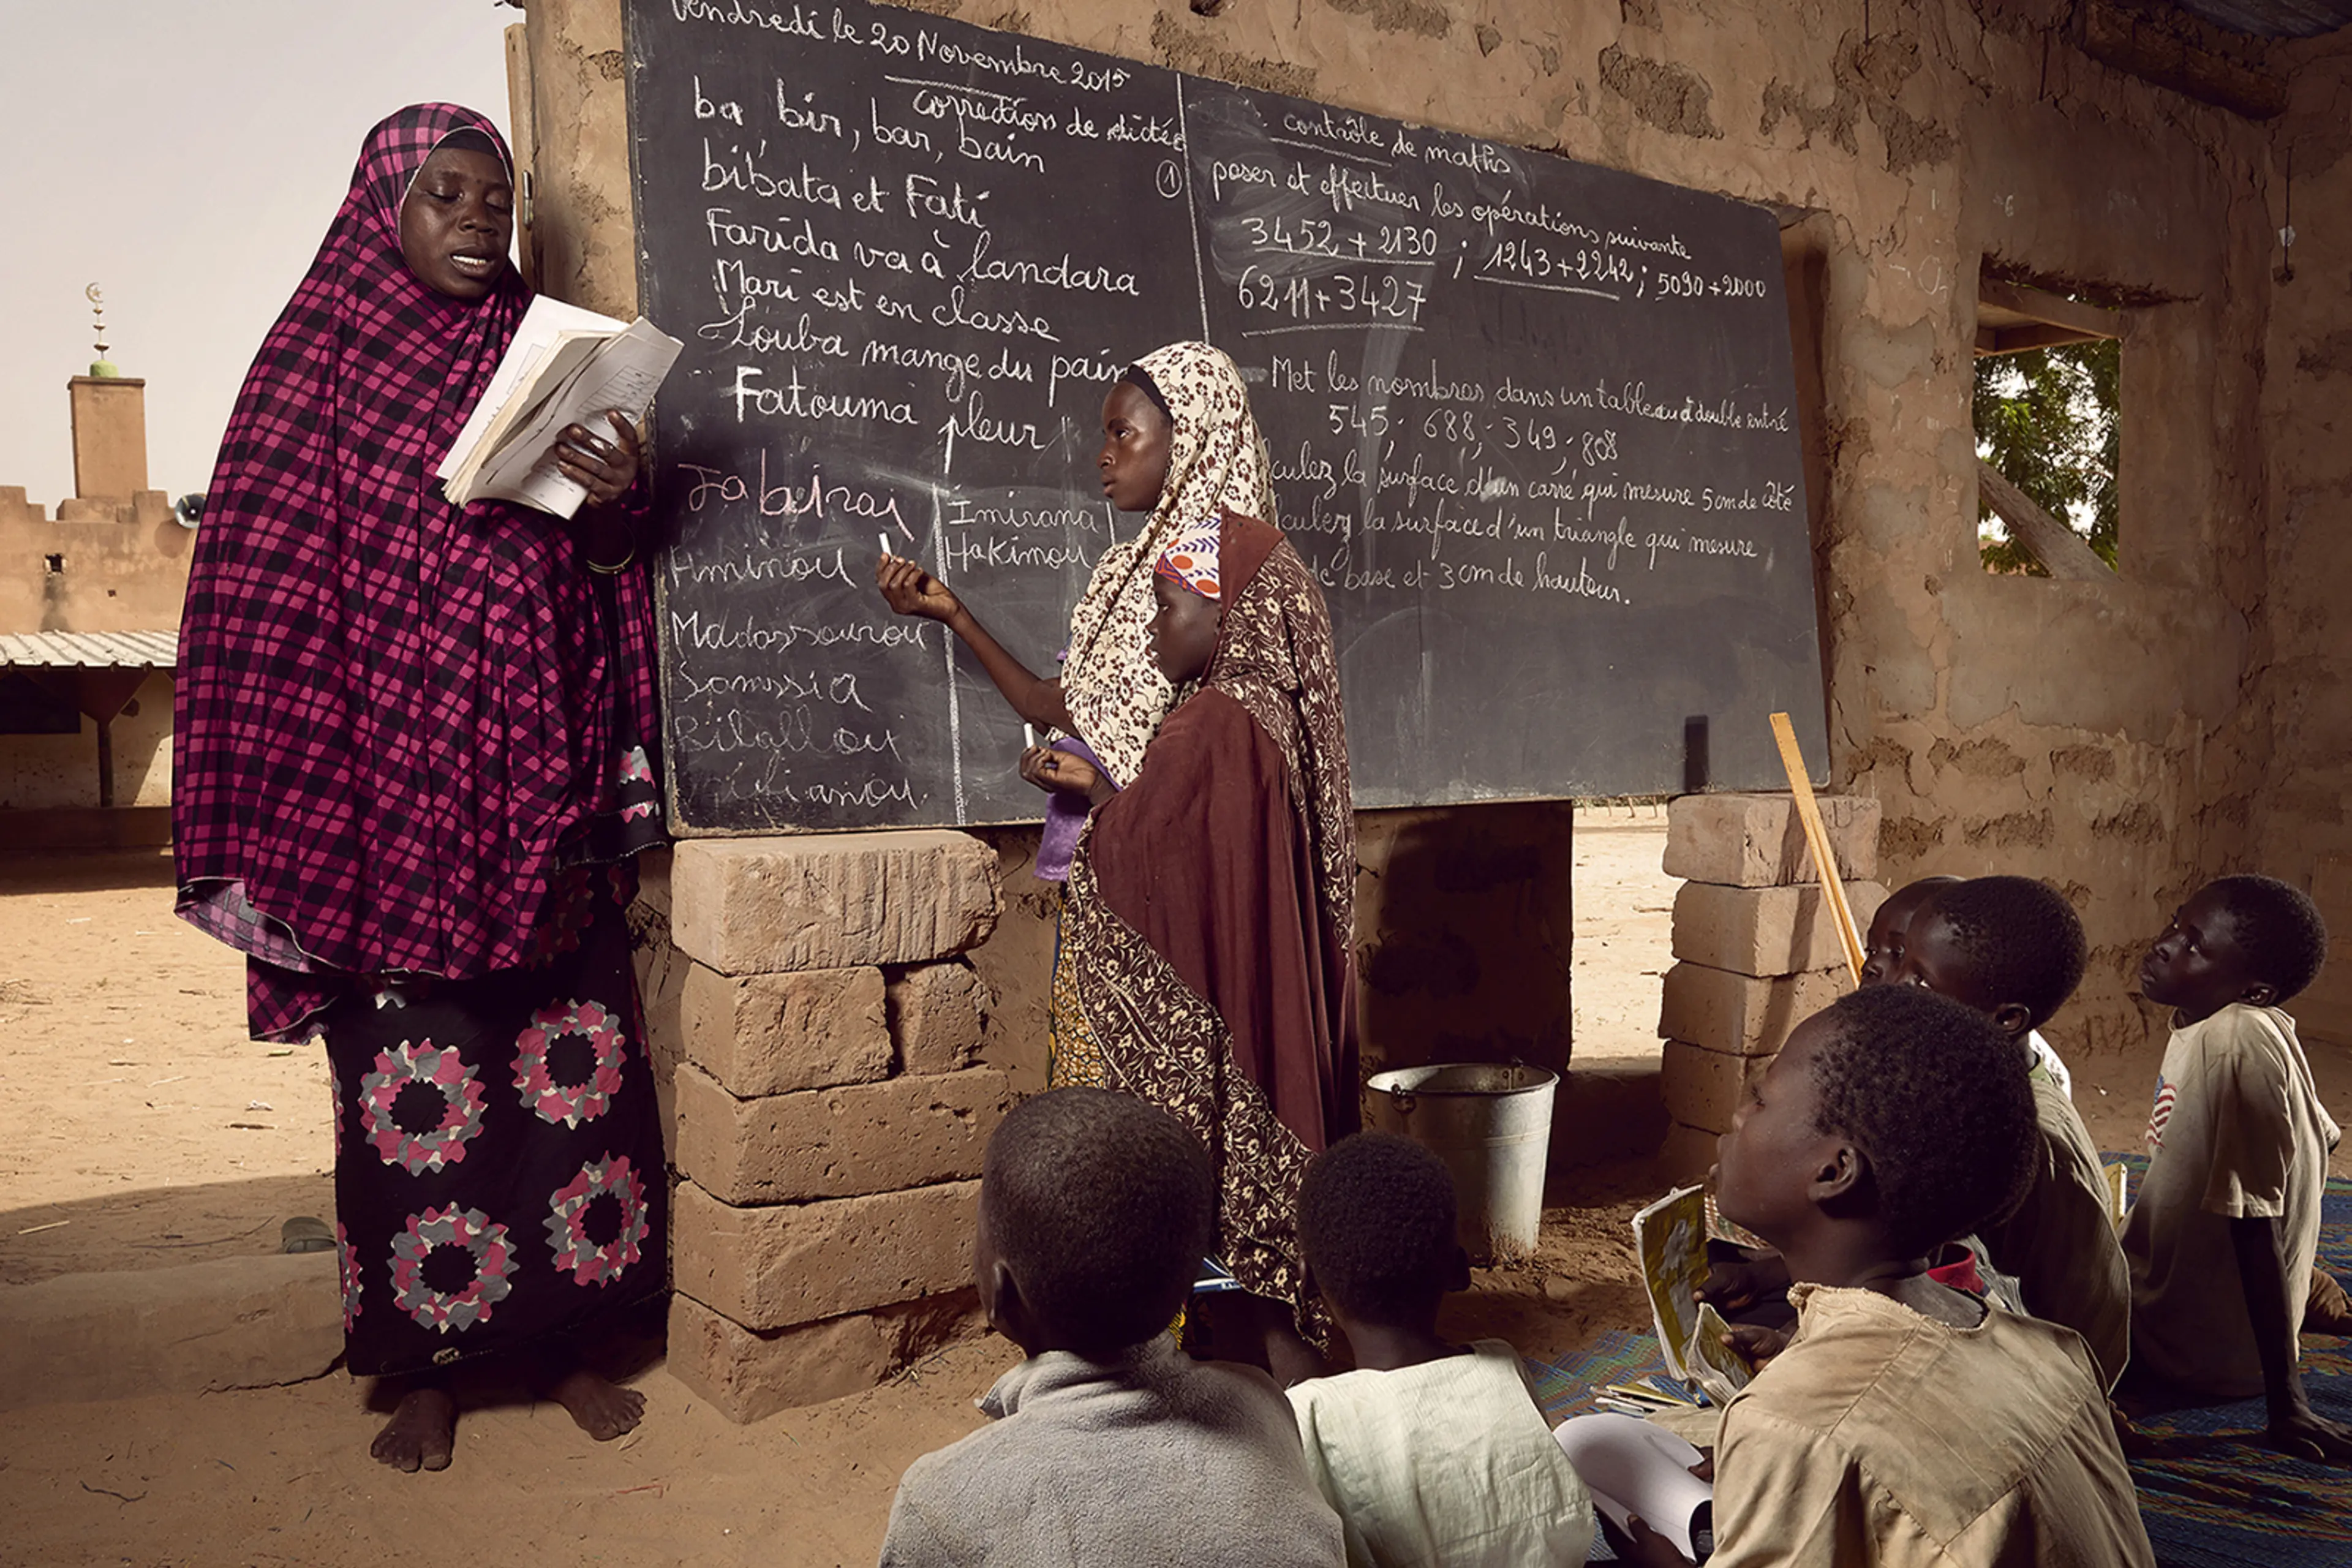 Vendredi le 20 Novembre 2015
correction de dictée
ba bir, bar, bain
bibata et Fati
Farida va à landara
Mari est en classe
Louba mange du pain
Fatouma pleur
Jabirai
Aminou
Madassourou
Somssia
Bilallou
Imirana
Hakimou
contrôle de maths
① poser et effectuer les opérations suivante
3452 + 2130 ; 1243 + 2242 ; 5090 + 2000
6211 + 3427
Met les nombres dans un tableau à double entré
545 ; 688 ; 349 ; 808
culez la surface d'un carré qui mesure 5 cm de côté
culez la surface d'un triangle qui mesure
de base et 3 cm de hauteur.